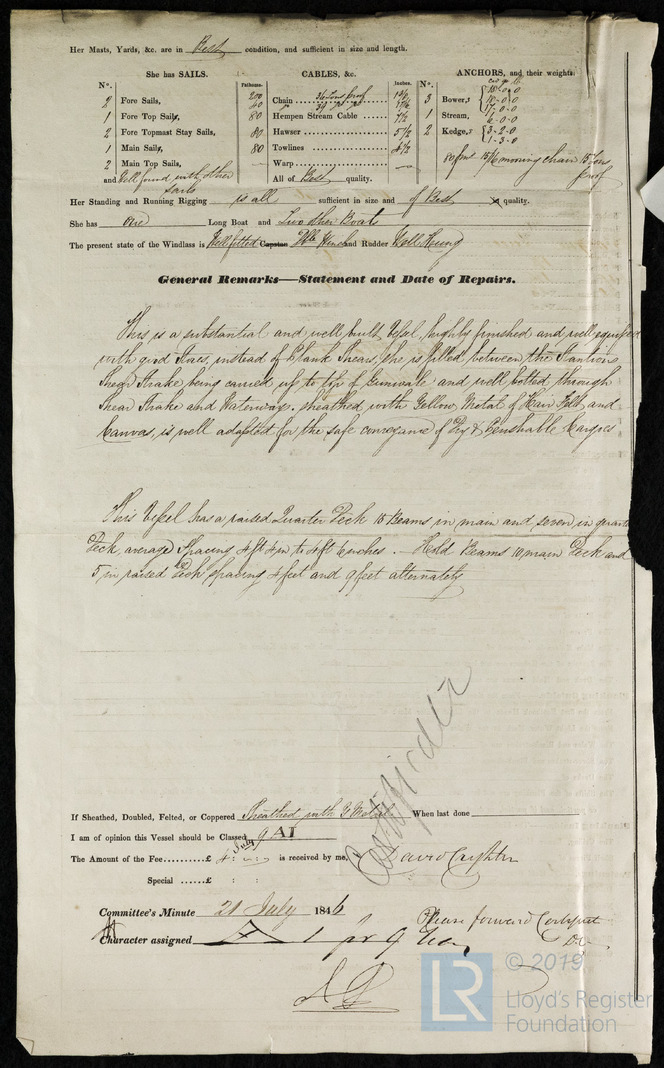 Her Masts, Yards, &c. are in Best condition, and sufficient in size and length.
She has SAILS.
CABLES, &c.
ANCHORS, and their weights.
Nº.
Fathoms.
Inches.
Nº.
2 Fore Sails,
1 Fore Top Sails,
2 Fore Topmast Stay Sails,
1 Main Sails,
2 Main Top Sails,
and Well found with other Sails
200 Chain
Hempen Stream Cable 80 7½
Hawser 80 5½
Towlines 80 4½
Warp
All of Best quality.
3 Bower,
17-0-0
1 Stream, 6-0-0
2 Kedge, 3-2-0
1-3-0
80 fms 15/16 mooring chain 15 Tons proof
Her Standing and Running Rigging is all sufficient in size and of Best quality.
She has One Long Boat and Two other Boats
The present state of the Windlass is Well fitted Capstan Dble Winch and Rudder Well Hung
General Remarks—Statement and Date of Repairs.
This is a substantial and well built Vessel, highly finished and well equipped
with good Stores, instead of Plank Shears, she is filled between the Stantions
Shear Strake being carried up to top of Gunwale and well bolted through
Shear Strake and Waterway. sheathed with Yellow Metal of Hair Felt and
Canvas, is well adapted for the safe conveyance of Dry & Perishable Cargoes
This Vessel has a raised Quarter Deck 15 Beams in main and seven in quarter
Deck, average Spacing 4ft 4in to 4ft 6 inches. Hold Beams 10 main Deck and
5 in raised Deck spacing 4 feet and 9 feet alternately
If Sheathed, Doubled, Felted, or Coppered Sheathed with Y Metal When last done
I am of opinion this Vessel should be Classed 9 A1
The Amount of the Fee..........£ 4 : is received by me,
Special ......£ : :
Committee's Minute 21 July 1846
Please forward Certificate
Character assigned A 1 for 9 Years
© 2019
LR
Lloyd's Register
Foundation